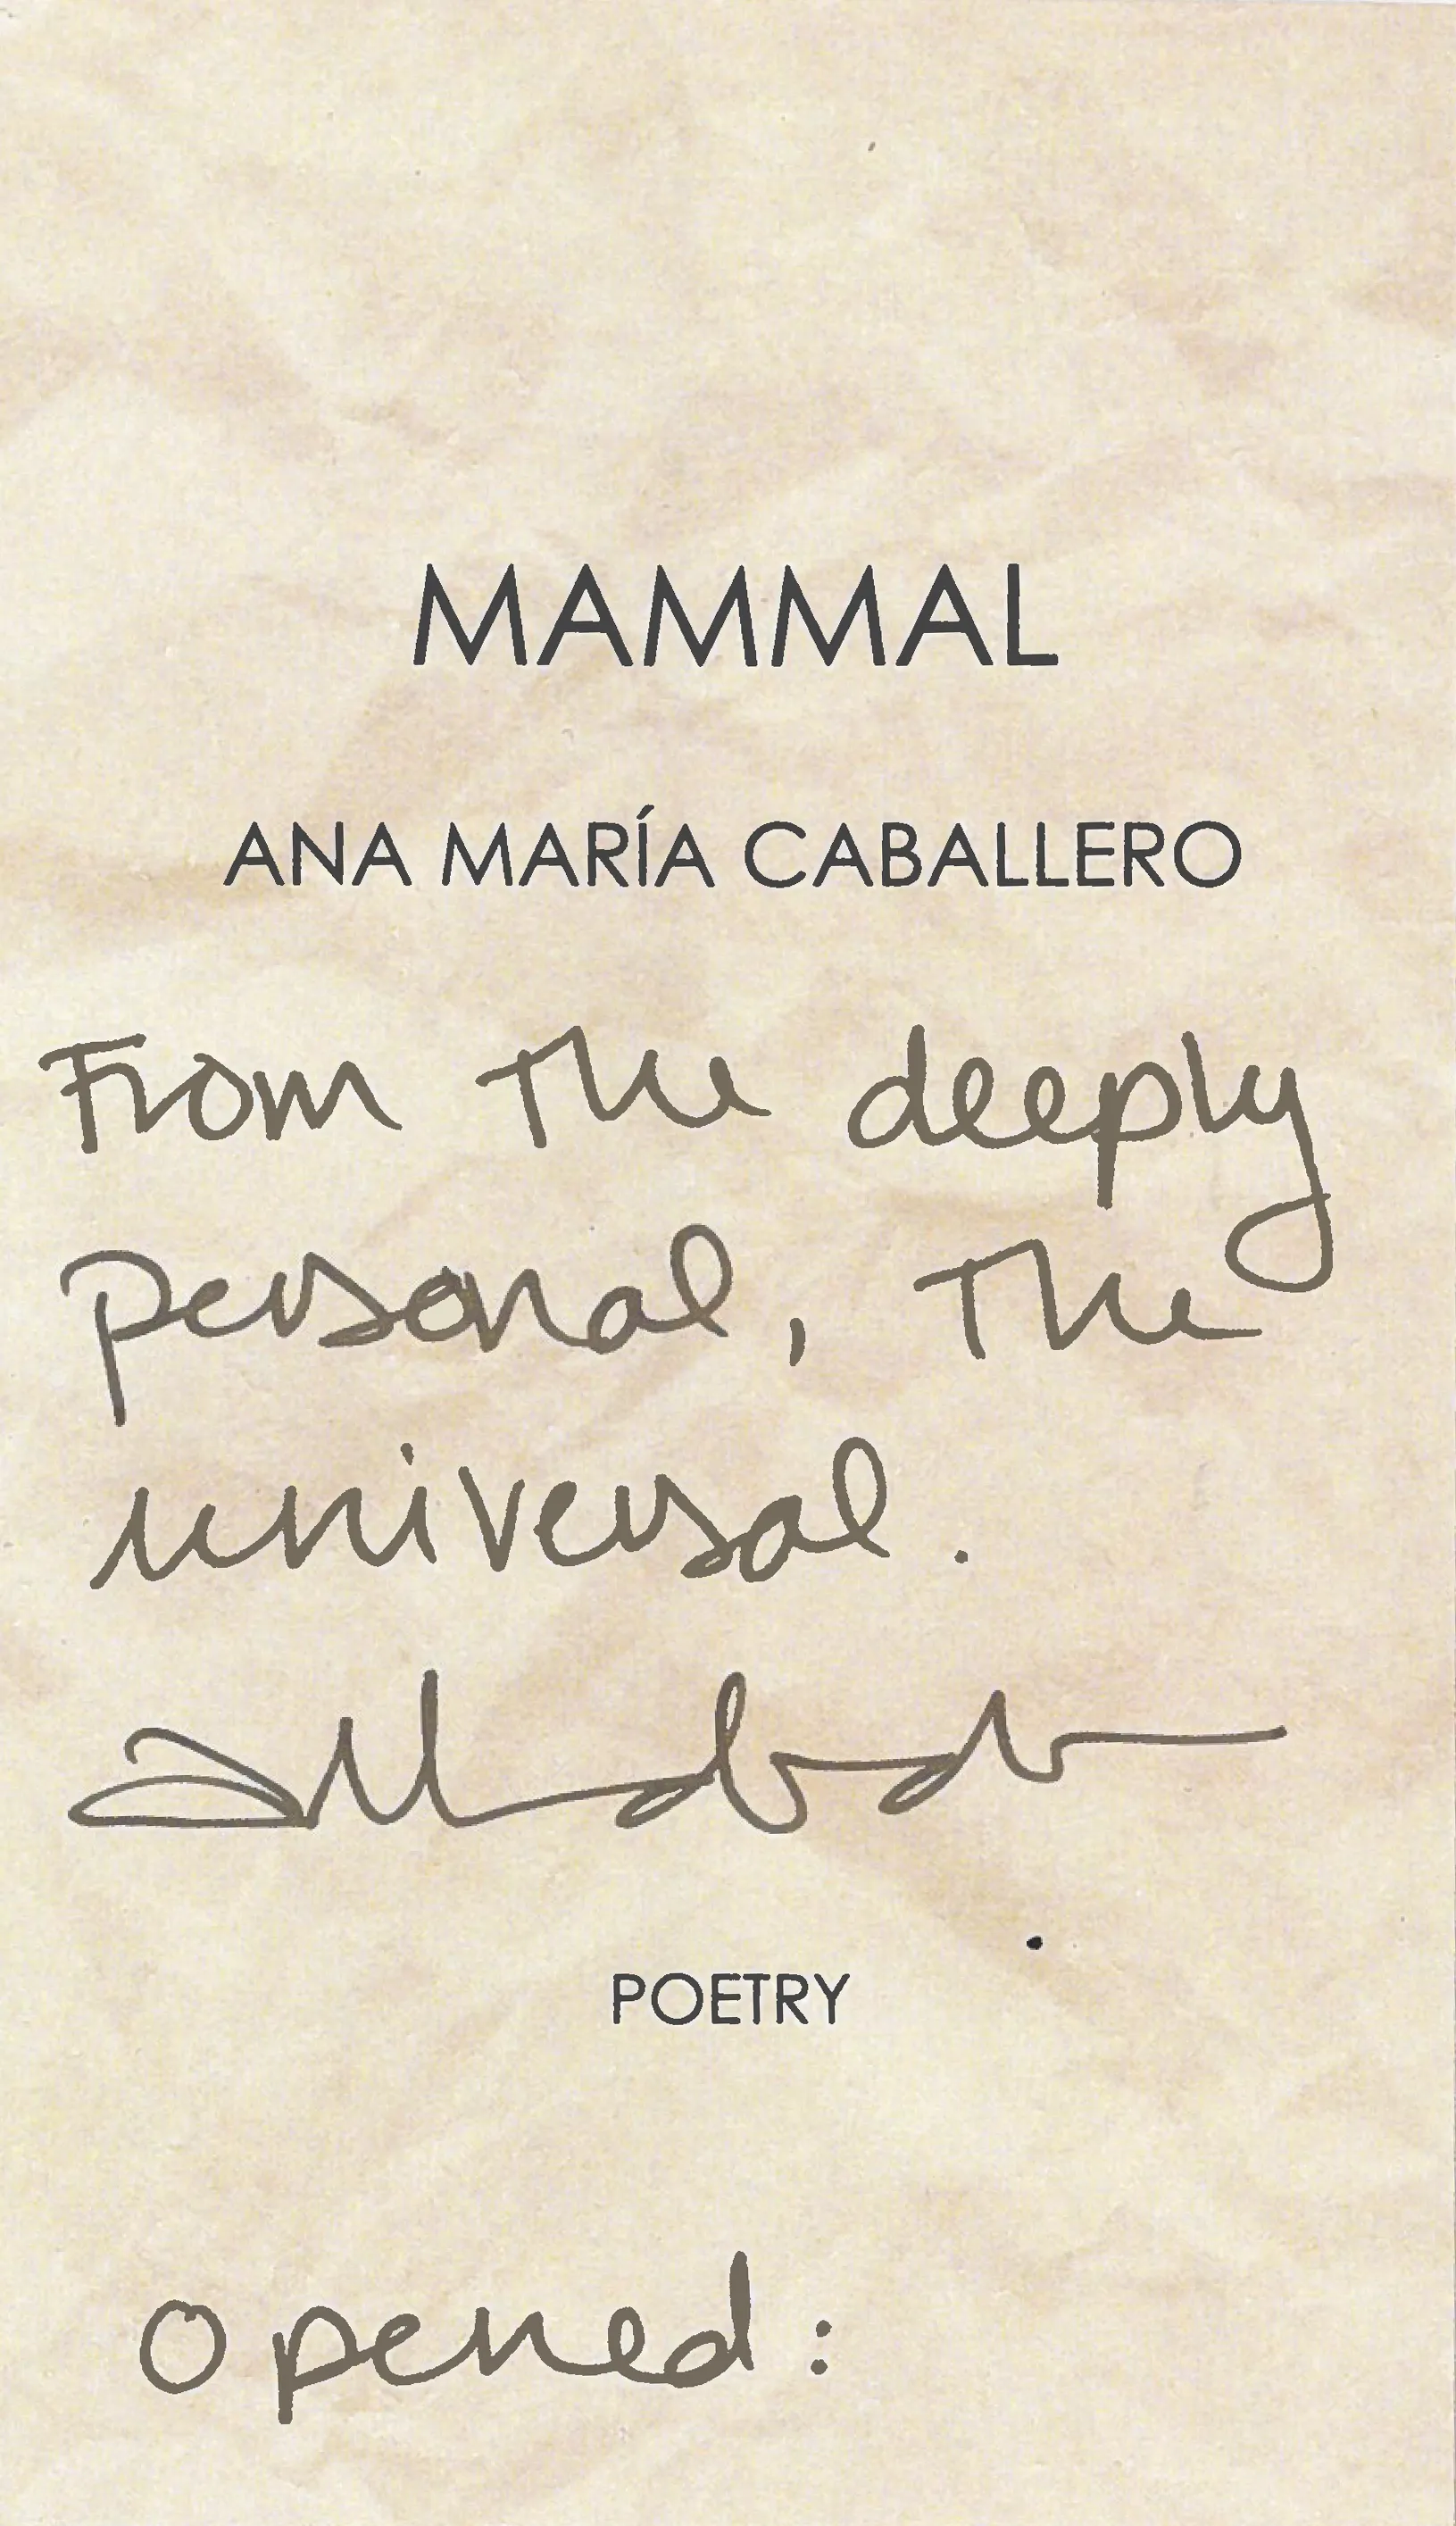 MAMMAL
ANA MARÍA CABALLERO
From the deeply
personal, the
universal.
POETRY
opened: